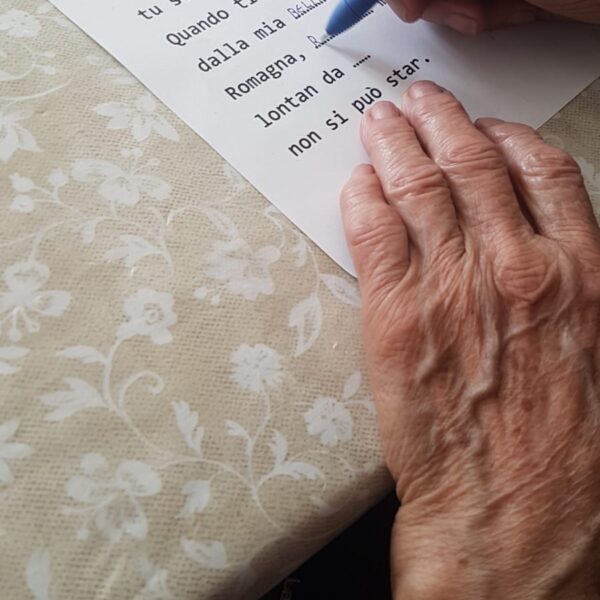 tu s
Quando ti
dalla mia BELLA
Romagna, R
lontan da .....
non si può star.